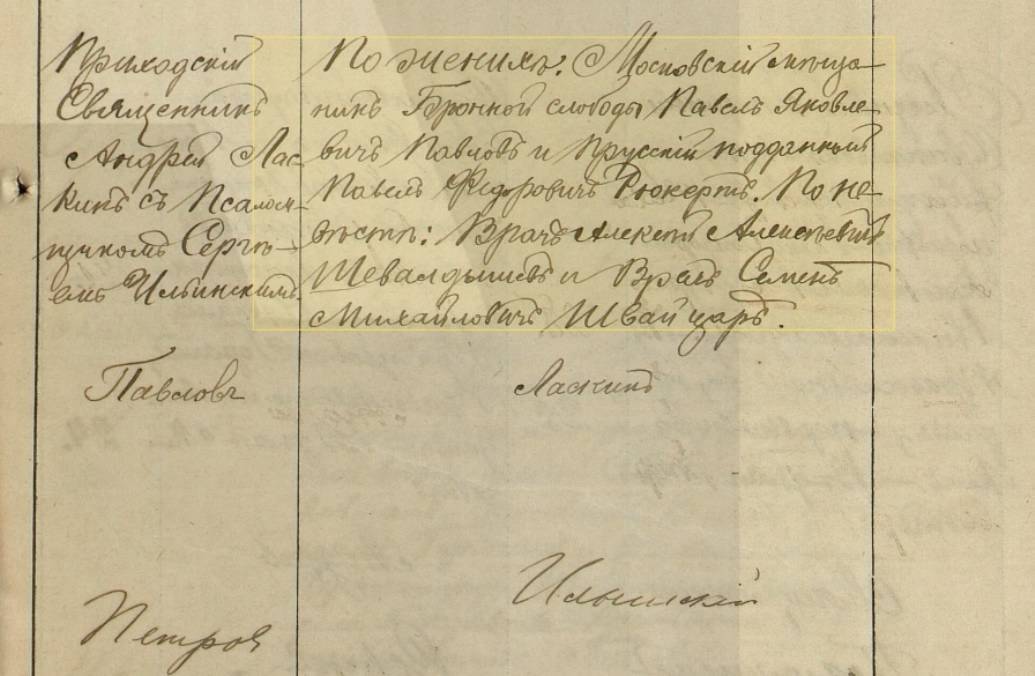 Приходскій
Священникъ
Андрей Лас-
кинъ съ Псалом-
щикомъ Сергѣ-
емъ Ильинскимъ.
По женихѣ: Московскій мѣща-
нинъ Бронной слободы Павелъ Яковле-
вичъ Павловъ и Прусскій подданный
Павелъ Федоровичъ Рюкертъ. По не-
вѣстѣ: Врачъ Алексѣй Алексѣевичъ
Шевалдышевъ и Врачъ Семенъ
Михайловичъ Швайцаръ.
Павловъ
Ласкинъ
Ильинскій
Петров